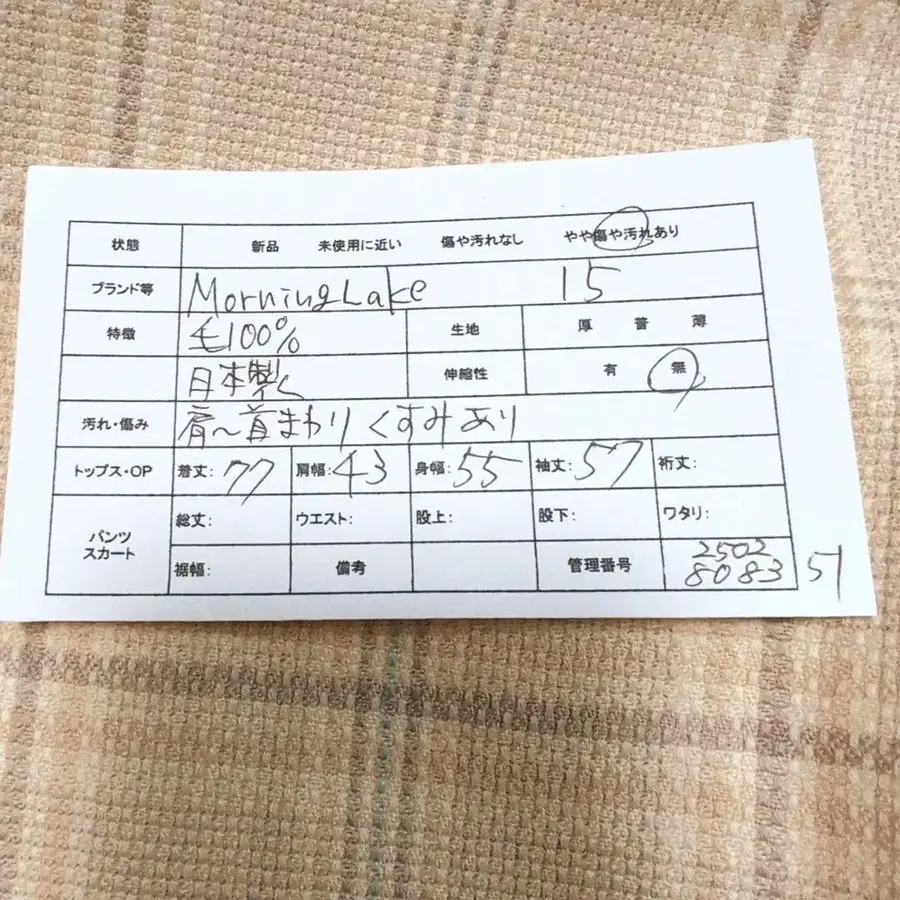 状態 新品 未使用に近い 傷や汚れなし やや傷や汚れあり
ブランド等 MorningLake 15
特徴 毛100% 生地 厚 普 薄
日本製 伸縮性 有 無
汚れ・傷み 肩〜首まわりくすみあり
トップス・OP 着丈: 77 肩幅: 43 身幅: 55 袖丈: 57 裄丈:
パンツ スカート 総丈: ウエスト: 股上: 股下: ワタリ:
裾幅: 備考 管理番号 2502 8083 51